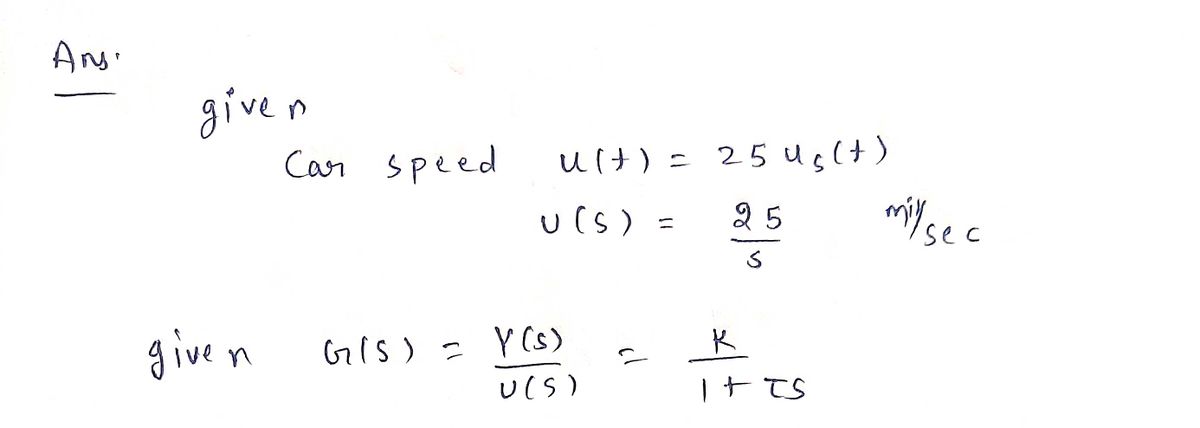 Ans.
given
Car speed u(t) = 25 us(t)
U(s) = 25/s mi/sec
given G(s) = Y(s)/U(s) = K/1+τs